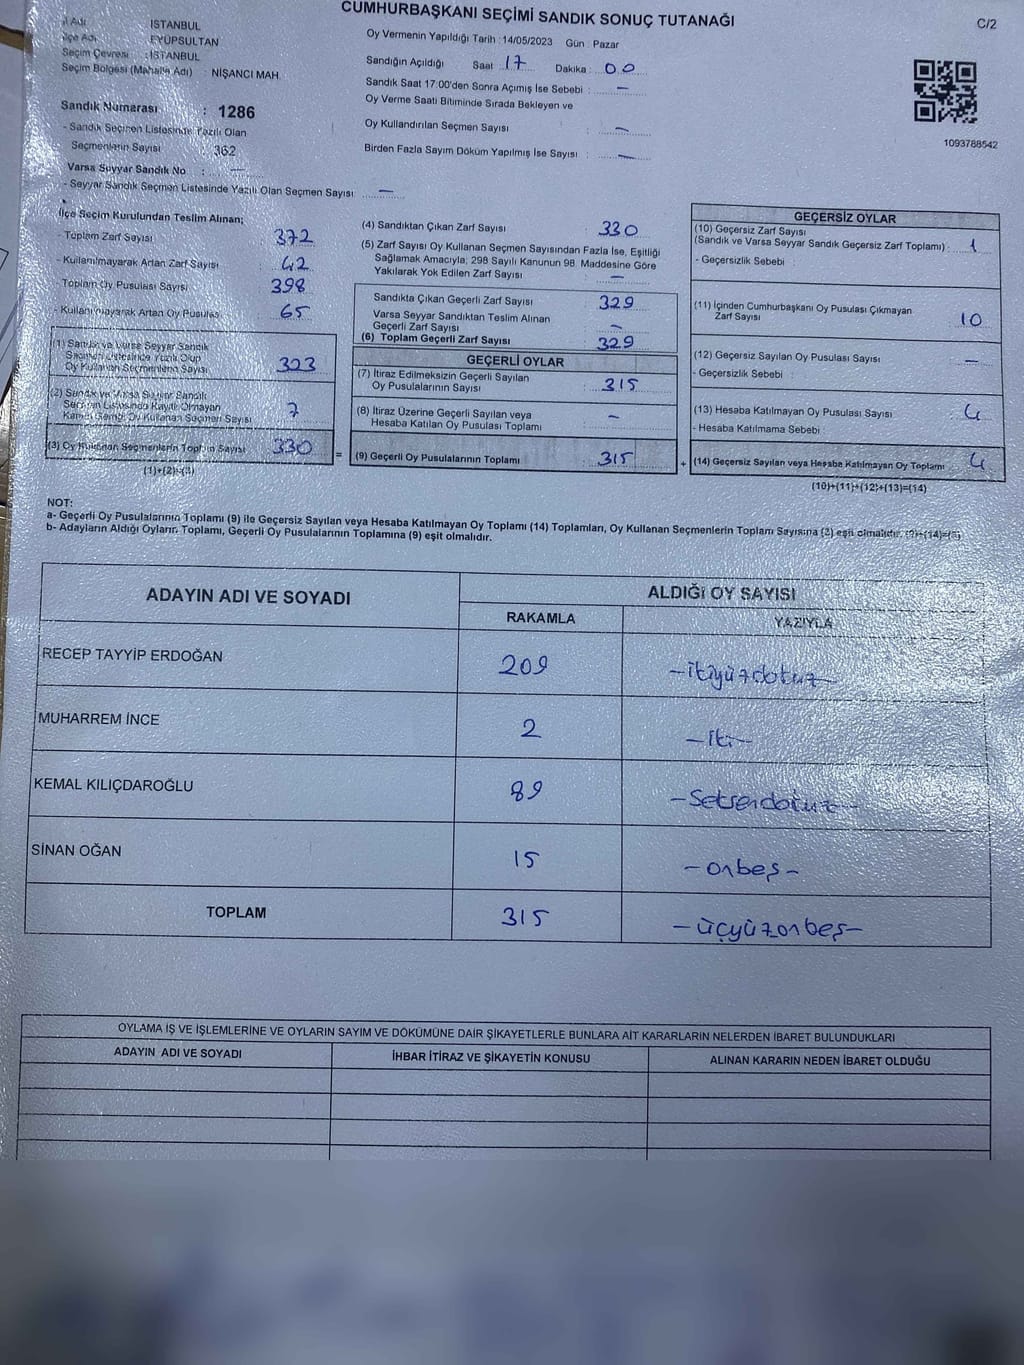 CUMHURBAŞKANI SEÇİMİ SANDIK SONUÇ TUTANAĞI
C/2
İl Adı : İSTANBUL
İlçe Adı : EYÜPSULTAN
Seçim Çevresi : İSTANBUL
Seçim Bölgesi (Mahalle Adı) : NİŞANCI MAH.
Sandık Numarası : 1286
- Sandık Seçmen Listesinde Yazılı Olan
Seçmenlerin Sayısı 362
Varsa Seyyar Sandık No : —
- Seyyar Sandık Seçmen Listesinde Yazılı Olan Seçmen Sayısı : —
Oy Vermenin Yapıldığı Tarih : 14/05/2023 Gün : Pazar
Sandığın Açıldığı Saat : 17 Dakika : 00
Sandık Saat 17:00'den Sonra Açımış İse Sebebi : —
Oy Verme Saati Bitiminde Sırada Bekleyen ve
Oy Kullandırılan Seçmen Sayısı : —
Birden Fazla Sayım Döküm Yapılmış İse Sayısı : —
1093788542
İlçe Seçim Kurulundan Teslim Alınan;
- Toplam Zarf Sayısı : 372
- Kullanılmayarak Artan Zarf Sayısı : 42
- Toplam Oy Pusulası Sayısı : 398
- Kullanılmayarak Artan Oy Pusulası : 65
(1) Sandık ve Varsa Seyyar Sandık
Seçmen Listesinde Yazılı Olup
Oy Kullanan Seçmenlerin Sayısı : 323
(2) Sandık ve Varsa Seyyar Sandık
Seçmen Listesinde Kayıtlı Olmayan
Kamu Görevlisi Oy Kullanan Seçmen Sayısı : 7
(3) Oy Kullanan Seçmenlerin Toplam Sayısı 330
(1)+(2)=(3)
(4) Sandıktan Çıkan Zarf Sayısı : 330
(5) Zarf Sayısı Oy Kullanan Seçmen Sayısından Fazla İse, Eşitliği
Sağlamak Amacıyla; 298 Sayılı Kanunun 98. Maddesine Göre
Yakılarak Yok Edilen Zarf Sayısı : —
Sandıkta Çıkan Geçerli Zarf Sayısı : 329
Varsa Seyyar Sandıktan Teslim Alınan
Geçerli Zarf Sayısı : —
(6) Toplam Geçerli Zarf Sayısı : 329
GEÇERLİ OYLAR
(7) İtiraz Edilmeksizin Geçerli Sayılan
Oy Pusulalarının Sayısı : 315
(8) İtiraz Üzerine Geçerli Sayılan veya
Hesaba Katılan Oy Pusulası Toplamı : —
= (9) Geçerli Oy Pusulalarının Toplamı : 315 +
GEÇERSİZ OYLAR
(10) Geçersiz Zarf Sayısı
(Sandık ve Varsa Seyyar Sandık Geçersiz Zarf Toplamı) : 1
- Geçersizlik Sebebi :
(11) İçinden Cumhurbaşkanı Oy Pusulası Çıkmayan
Zarf Sayısı : 10
(12) Geçersiz Sayılan Oy Pusulası Sayısı : —
- Geçersizlik Sebebi :
(13) Hesaba Katılmayan Oy Pusulası Sayısı : 4
- Hesaba Katılmama Sebebi :
(14) Geçersiz Sayılan veya Hesaba Katılmayan Oy Toplamı : 4
(10)+(11)+(12)+(13)=(14)
NOT:
a- Geçerli Oy Pusulalarının Toplamı (9) ile Geçersiz Sayılan veya Hesaba Katılmayan Oy Toplamı (14) Toplamları, Oy Kullanan Seçmenlerin Toplam Sayısına (3) eşit olmalıdır. (9)+(14)=(3)
b- Adayların Aldığı Oyların Toplamı, Geçerli Oy Pusulalarının Toplamına (9) eşit olmalıdır.
ADAYIN ADI VE SOYADI ALDIĞI OY SAYISI
RAKAMLA YAZIYLA
RECEP TAYYİP ERDOĞAN 209 —ikiyüzdokuz—
MUHARREM İNCE 2 —iki—
KEMAL KILIÇDAROĞLU 89 —Seksendokuz—
SİNAN OĞAN 15 —onbeş—
TOPLAM 315 —üçyüzonbeş—
OYLAMA İŞ VE İŞLEMLERİNE VE OYLARIN SAYIM VE DÖKÜMÜNE DAİR ŞİKAYETLERLE BUNLARA AİT KARARLARIN NELERDEN İBARET BULUNDUKLARI
ADAYIN ADI VE SOYADI İHBAR İTİRAZ VE ŞİKAYETİN KONUSU ALINAN KARARIN NEDEN İBARET OLDUĞU